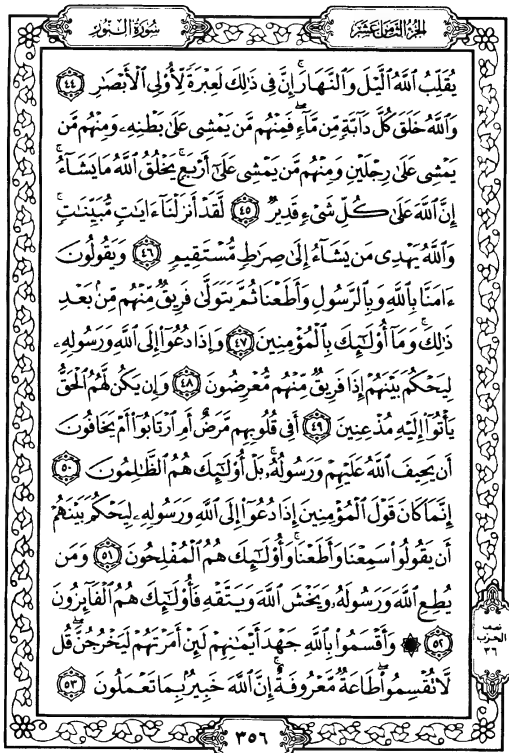 سُورَةُ النُّورِ
الجُزْءُ الثَّامِنَ عَشَرَ
يُقَلِّبُ اللَّهُ الَّيْلَ وَالنَّهَارَ ۚ إِنَّ فِى ذَٰلِكَ لَعِبْرَةً لِّأُو۟لِى الْأَبْصَٰرِ ٤٤
وَاللَّهُ خَلَقَ كُلَّ دَآبَّةٍ مِّن مَّآءٍ ۖ فَمِنْهُم مَّن يَمْشِى عَلَىٰ بَطْنِهِۦ وَمِنْهُم مَّن
يَمْشِى عَلَىٰ رِجْلَيْنِ وَمِنْهُم مَّن يَمْشِى عَلَىٰٓ أَرْبَعٍ ۚ يَخْلُقُ اللَّهُ مَا يَشَآءُ ۚ
إِنَّ اللَّهَ عَلَىٰ كُلِّ شَىْءٍ قَدِيرٌ ٤٥ لَّقَدْ أَنزَلْنَآ ءَايَٰتٍ مُّبَيِّنَٰتٍ ۚ
وَاللَّهُ يَهْدِى مَن يَشَآءُ إِلَىٰ صِرَٰطٍ مُّسْتَقِيمٍ ٤٦ وَيَقُولُونَ
ءَامَنَّا بِاللَّهِ وَبِالرَّسُولِ وَأَطَعْنَا ثُمَّ يَتَوَلَّىٰ فَرِيقٌ مِّنْهُم مِّنۢ بَعْدِ
ذَٰلِكَ ۚ وَمَآ أُو۟لَٰٓئِكَ بِالْمُؤْمِنِينَ ٤٧ وَإِذَا دُعُوٓا۟ إِلَى اللَّهِ وَرَسُولِهِۦ
لِيَحْكُمَ بَيْنَهُمْ إِذَا فَرِيقٌ مِّنْهُم مُّعْرِضُونَ ٤٨ وَإِن يَكُن لَّهُمُ الْحَقُّ
يَأْتُوٓا۟ إِلَيْهِ مُذْعِنِينَ ٤٩ أَفِى قُلُوبِهِم مَّرَضٌ أَمِ ارْتَابُوٓا۟ أَمْ يَخَافُونَ
أَن يَحِيفَ اللَّهُ عَلَيْهِمْ وَرَسُولُهُۥ ۚ بَلْ أُو۟لَٰٓئِكَ هُمُ الظَّٰلِمُونَ ٥٠
إِنَّمَا كَانَ قَوْلَ الْمُؤْمِنِينَ إِذَا دُعُوٓا۟ إِلَى اللَّهِ وَرَسُولِهِۦ لِيَحْكُمَ بَيْنَهُمْ
أَن يَقُولُوا۟ سَمِعْنَا وَأَطَعْنَا ۚ وَأُو۟لَٰٓئِكَ هُمُ الْمُفْلِحُونَ ٥١ وَمَن
يُطِعِ اللَّهَ وَرَسُولَهُۥ وَيَخْشَ اللَّهَ وَيَتَّقْهِ فَأُو۟لَٰٓئِكَ هُمُ الْفَآئِزُونَ
٥٢ ۞ وَأَقْسَمُوا۟ بِاللَّهِ جَهْدَ أَيْمَٰنِهِمْ لَئِنْ أَمَرْتَهُمْ لَيَخْرُجُنَّ ۖ قُل
لَّا تُقْسِمُوا۟ ۖ طَاعَةٌ مَّعْرُوفَةٌ ۚ إِنَّ اللَّهَ خَبِيرٌۢ بِمَا تَعْمَلُونَ ٥٣
نصف
الحزب
٣٦
٣٥٦